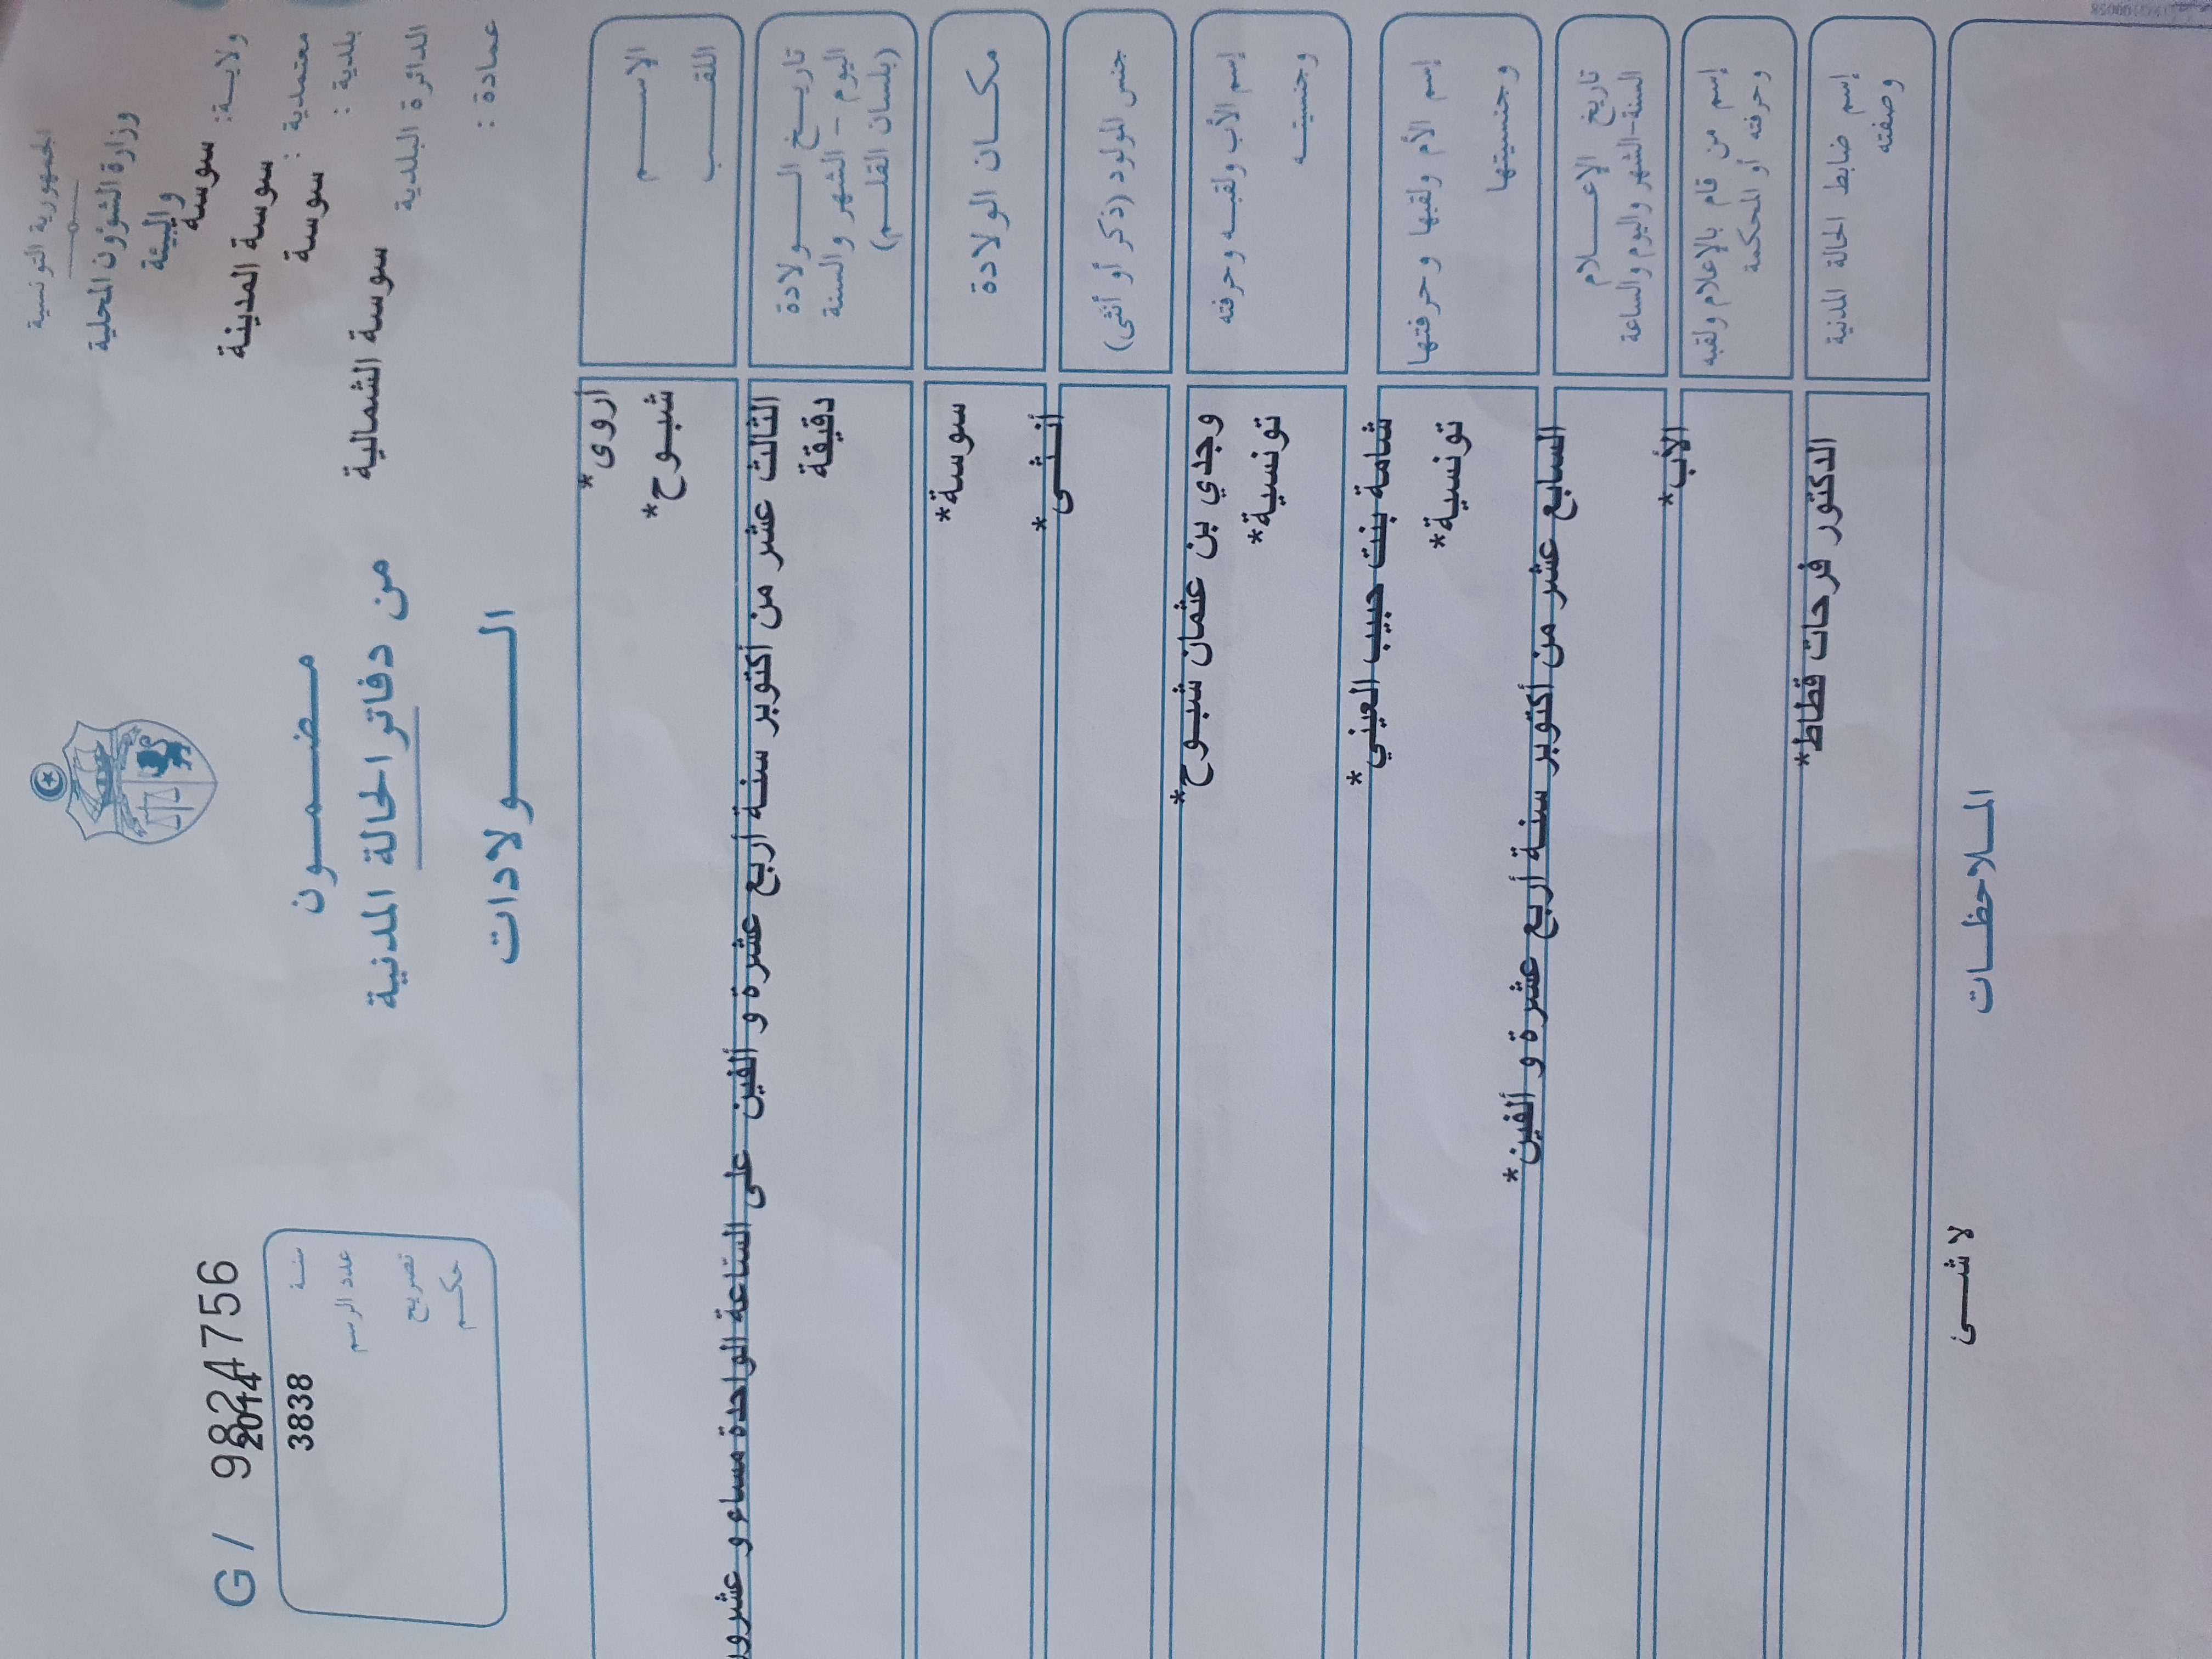 الجمهورية التونسية
وزارة الشؤون المحلية
والبيئة
ولايـة: سوسة
معتمدية : سوسة المدينة
بلدية : سوسة
الدائرة البلدية سوسة الشمالية
عمادة :
مـضـمـون
من دفاتر الحالة المدنية
الـــولادات
G / 9824756
سنة 2014
عدد الرسم 3838
تصريح
حكم
الإسم أروى*
اللقب شبوح*
تاريخ الولادة
اليوم - الشهر والسنة
(بلسان القلم)
الثالث عشر من أكتوبر سنة أربع عشرة و ألفين على الساعة الواحدة مساء و عشرون
دقيقة
مكان الولادة سوسة*
جنس المولود (ذكر أو أنثى) أنثى*
إسم الأب ولقبه وحرفته وجدي بن عثمان شبوح*
وجنسيته تونسية*
إسم الأم ولقبها وحرفتها شامة بنت حبيب العيني*
وجنسيتها تونسية*
تاريخ الإعلام
السنة-الشهر واليوم والساعة
السابع عشر من أكتوبر سنة أربع عشرة و ألفين*
إسم من قام بالإعلام ولقبه
وحرفته أو المحكمة
الأب*
إسم ضابط الحالة المدنية
وصفته
الدكتور فرحات قطاط*
الملاحظات
لا شئ